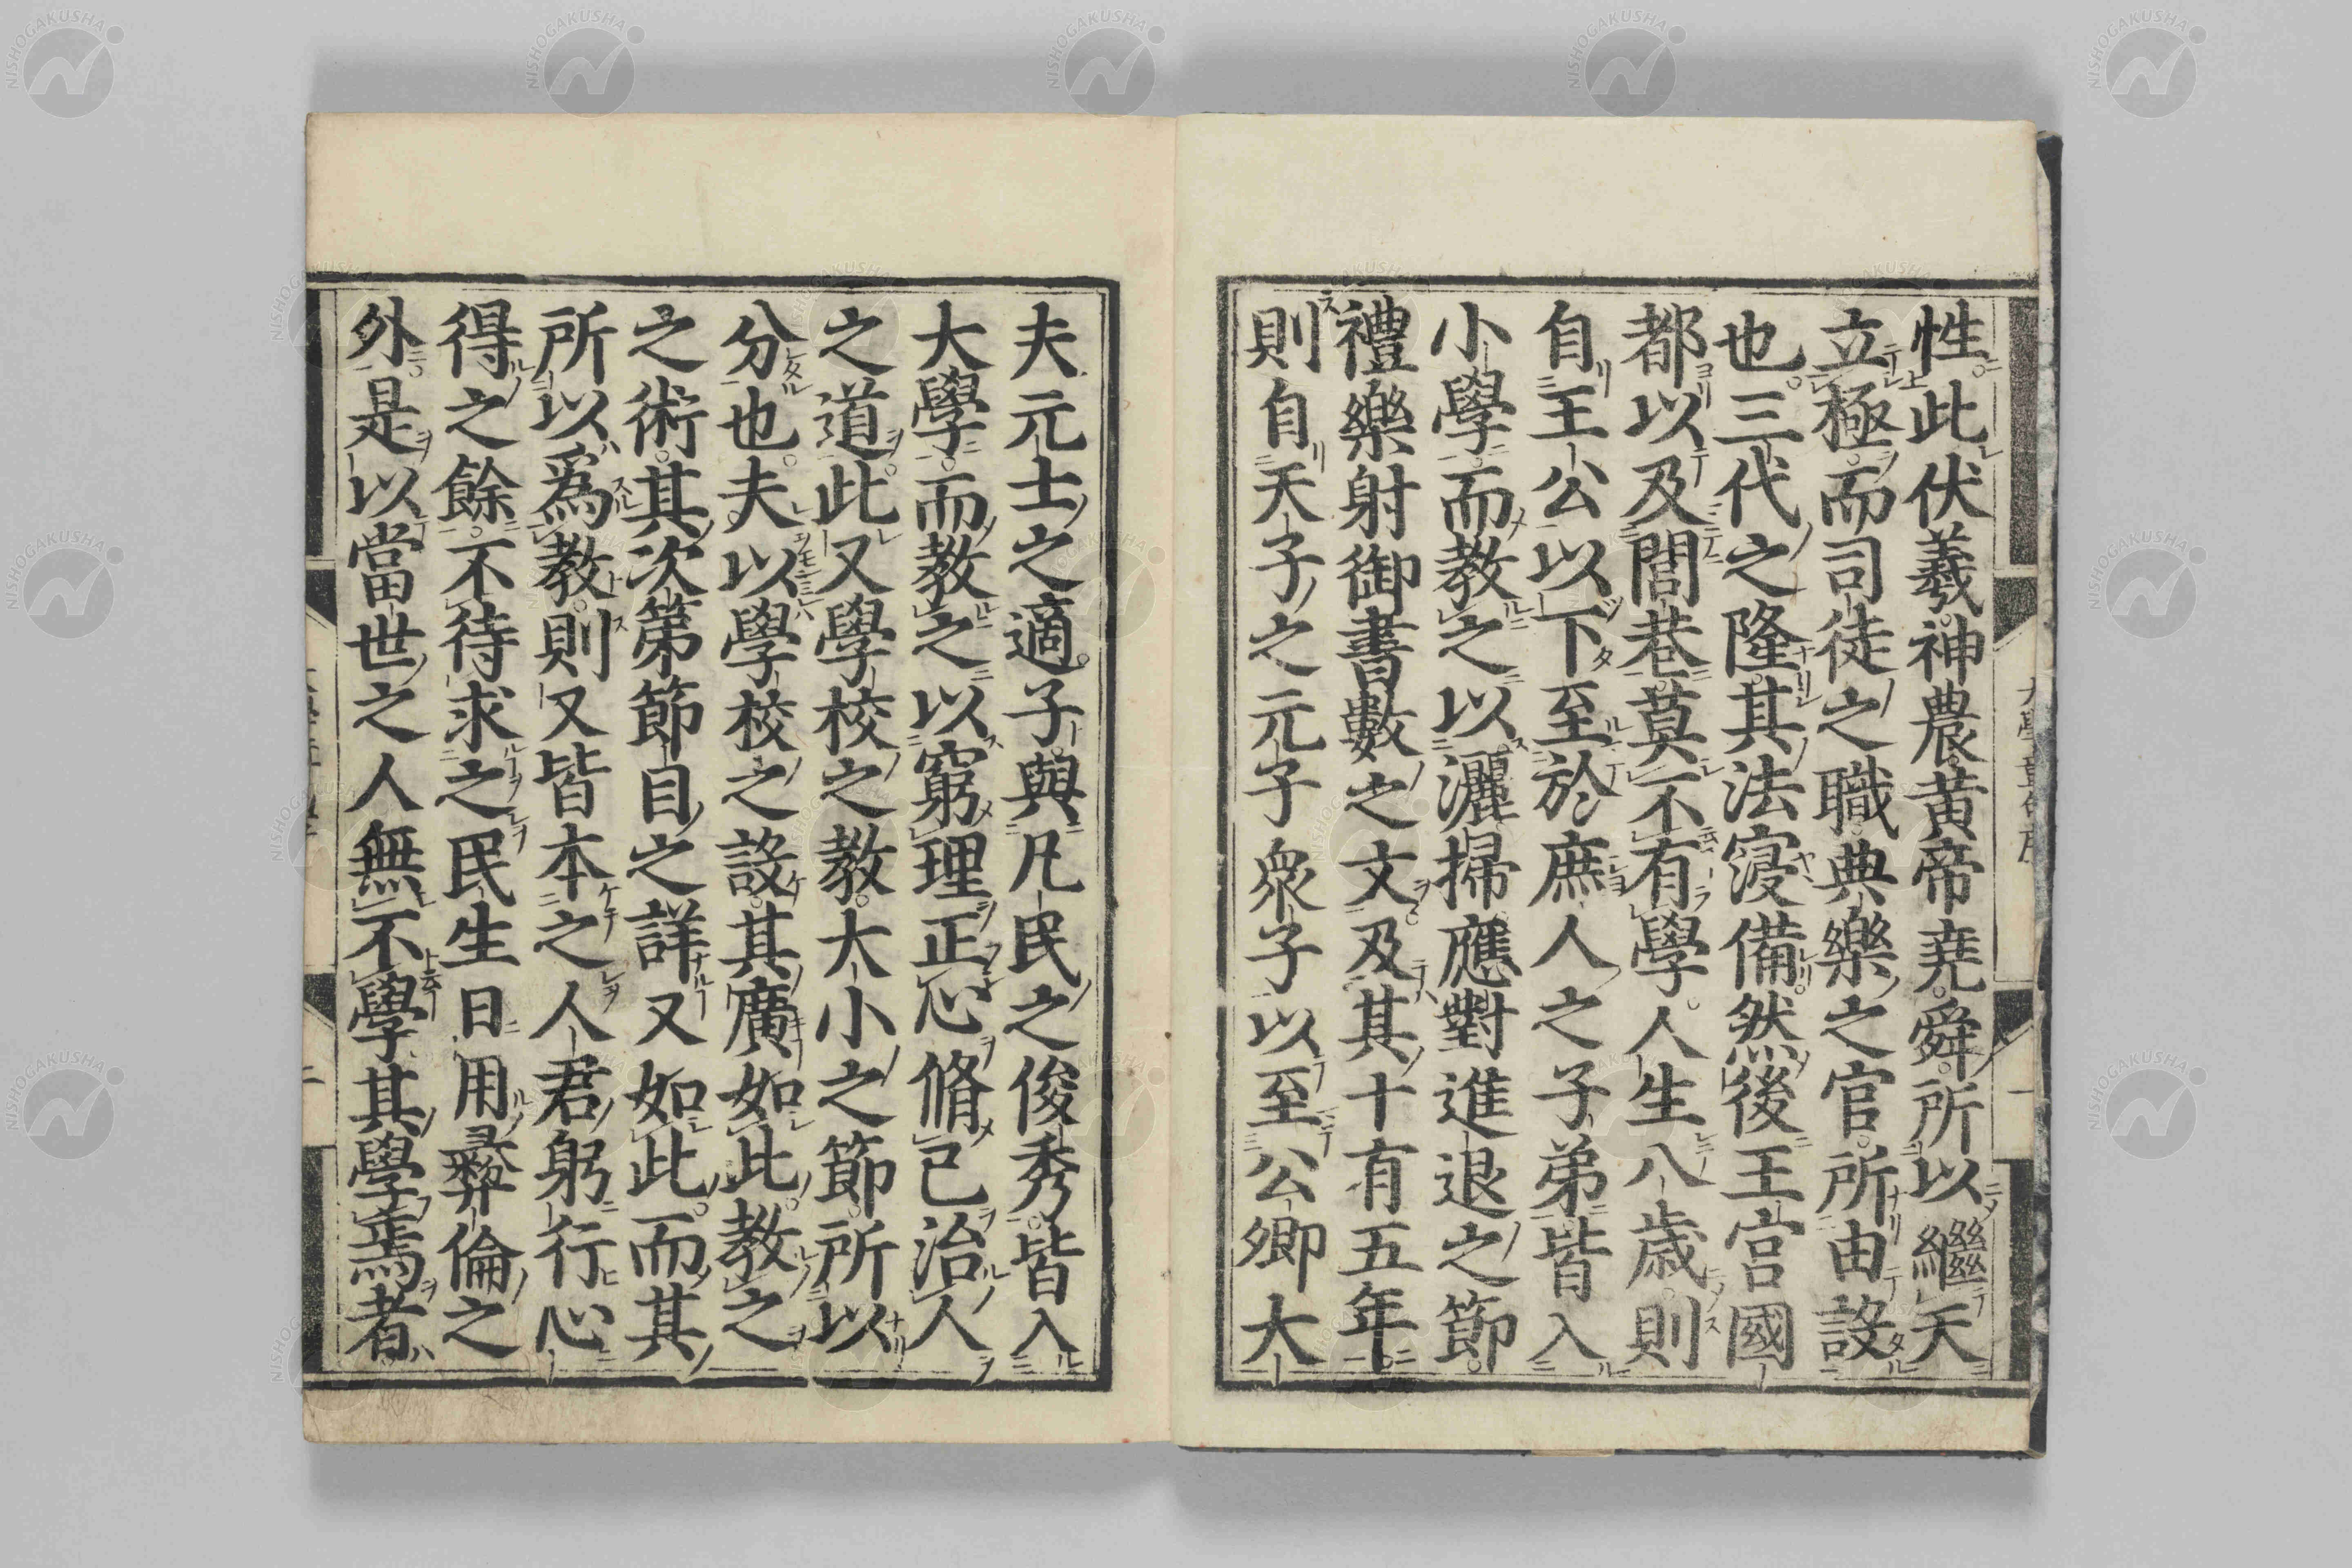 性此伏羲神農黄帝堯舜所以繼天
立極而司徒之職典樂之官所由設
也三代之隆其法寖備然後王宮國
都以及閭巷莫不有學人生八歳則
自王公以下至於庶人之子弟皆入
小學而教之以灑掃應對進退之節
禮樂射御書數之文及其十有五年
則自天子之元子衆子以至公卿大
夫元士之適子與凡民之俊秀皆入
大學而教之以窮理正心脩己治人
之道此又學校之教大小之節所以
分也夫以學校之設其廣如此教之
之術其次第節目之詳又如此而其
所以爲教則又皆本之人君躬行心
得之餘不待求之民生日用彝倫之
外是以當世之人無不學其學焉者
NISHOGAKUSHA